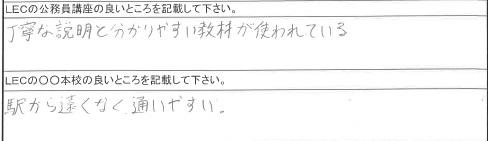 LECの公務員講座の良いところを記載して下さい。
丁寧な説明と分かりやすい教材が使われている
LECの〇〇本校の良いところを記載して下さい。
駅から遠くなく、通いやすい。